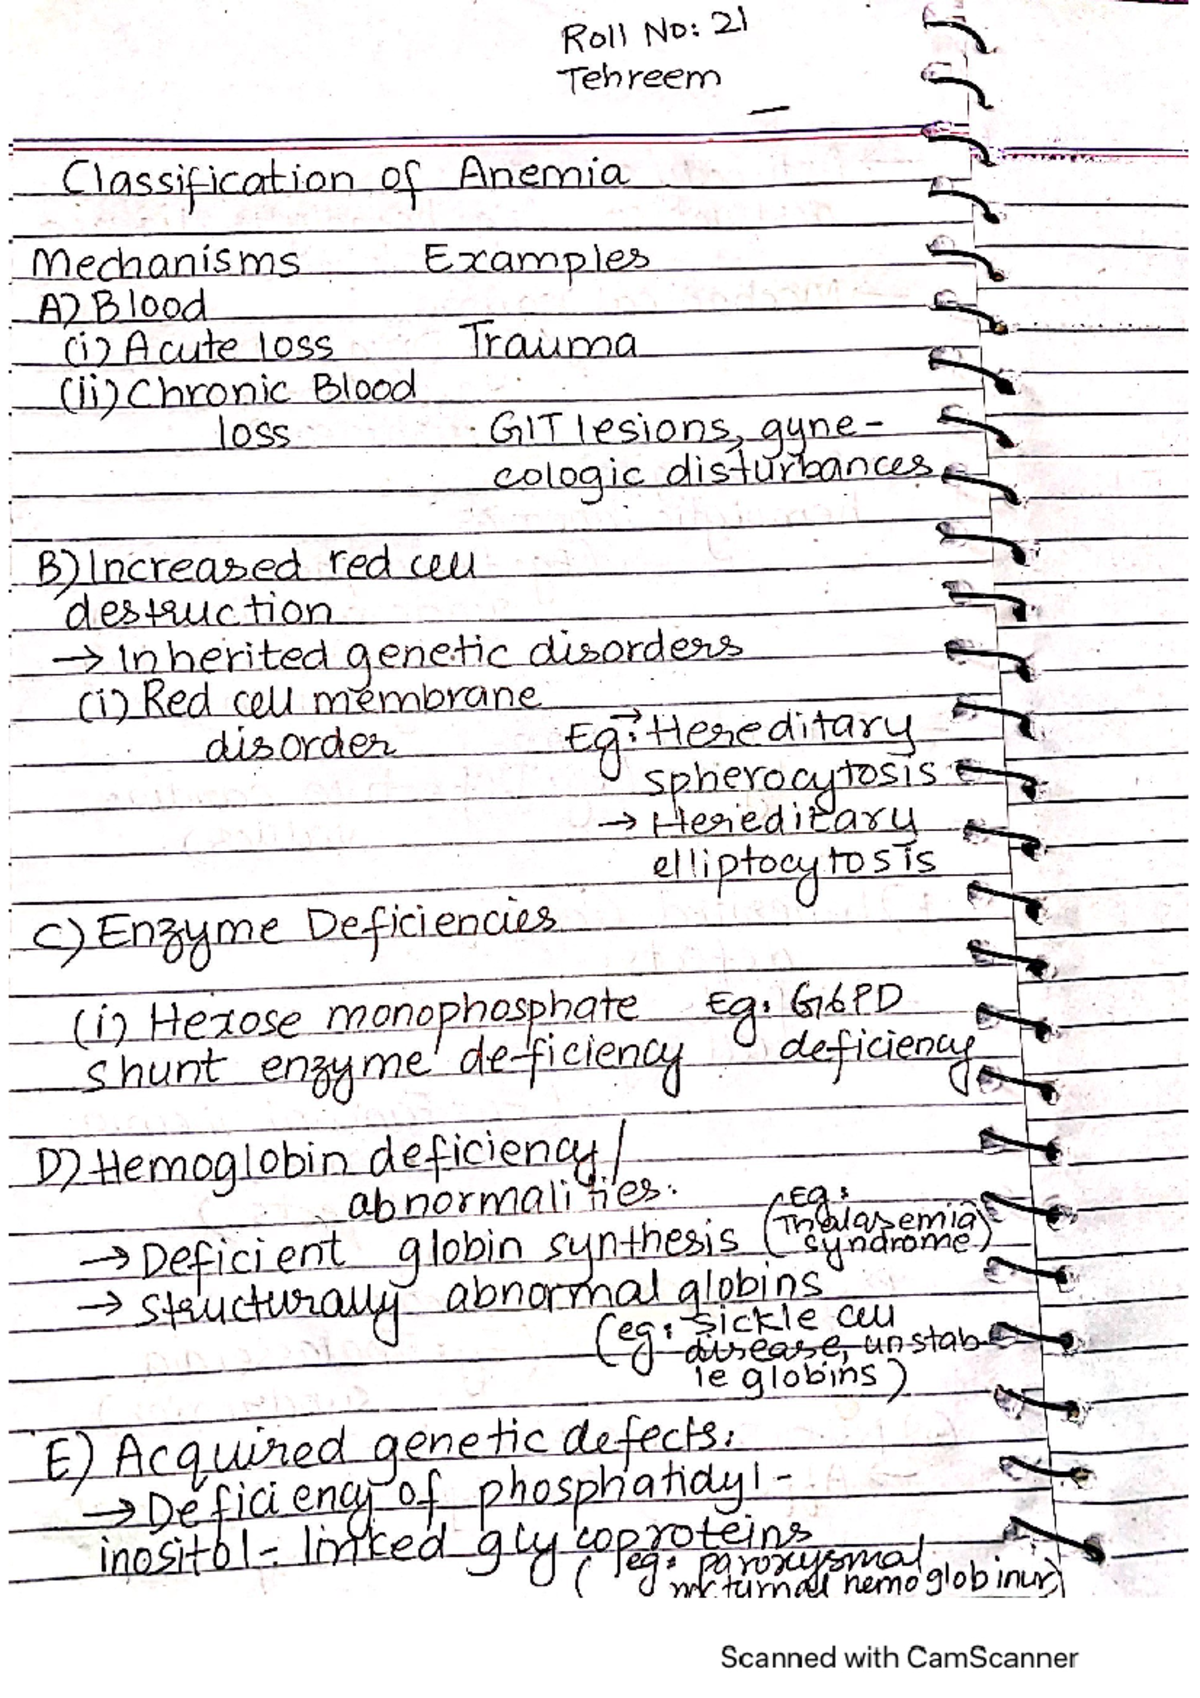 Roll No: 21
Tehreem
Classification of Anemia
Mechanisms Examples
A) Blood
(i) Acute loss Trauma
(ii) Chronic Blood
loss GIT lesions, gyne-
cologic disturbances
B) Increased red cell
destruction
→ Inherited genetic disorders
(i) Red cell membrane
disorder Eg:→ Hereditary
spherocytosis
→ Hereditary
elliptocytosis
C) Enzyme Deficiencies
(i) Hexose monophosphate Eg: G6PD
shunt enzyme deficiency deficiency
D) Hemoglobin deficiency/
abnormalities:
→ Deficient globin synthesis (Eg:
Thalasemia
syndrome)
→ Structurally abnormal globins
(eg: Sickle cell
disease, unstab
le globins)
E) Acquired genetic defects:
→ Deficiency of phosphatidyl-
inositol-linked glycoproteins
(eg: paroxysmal
nocturnal hemoglobinur)
Scanned with CamScanner